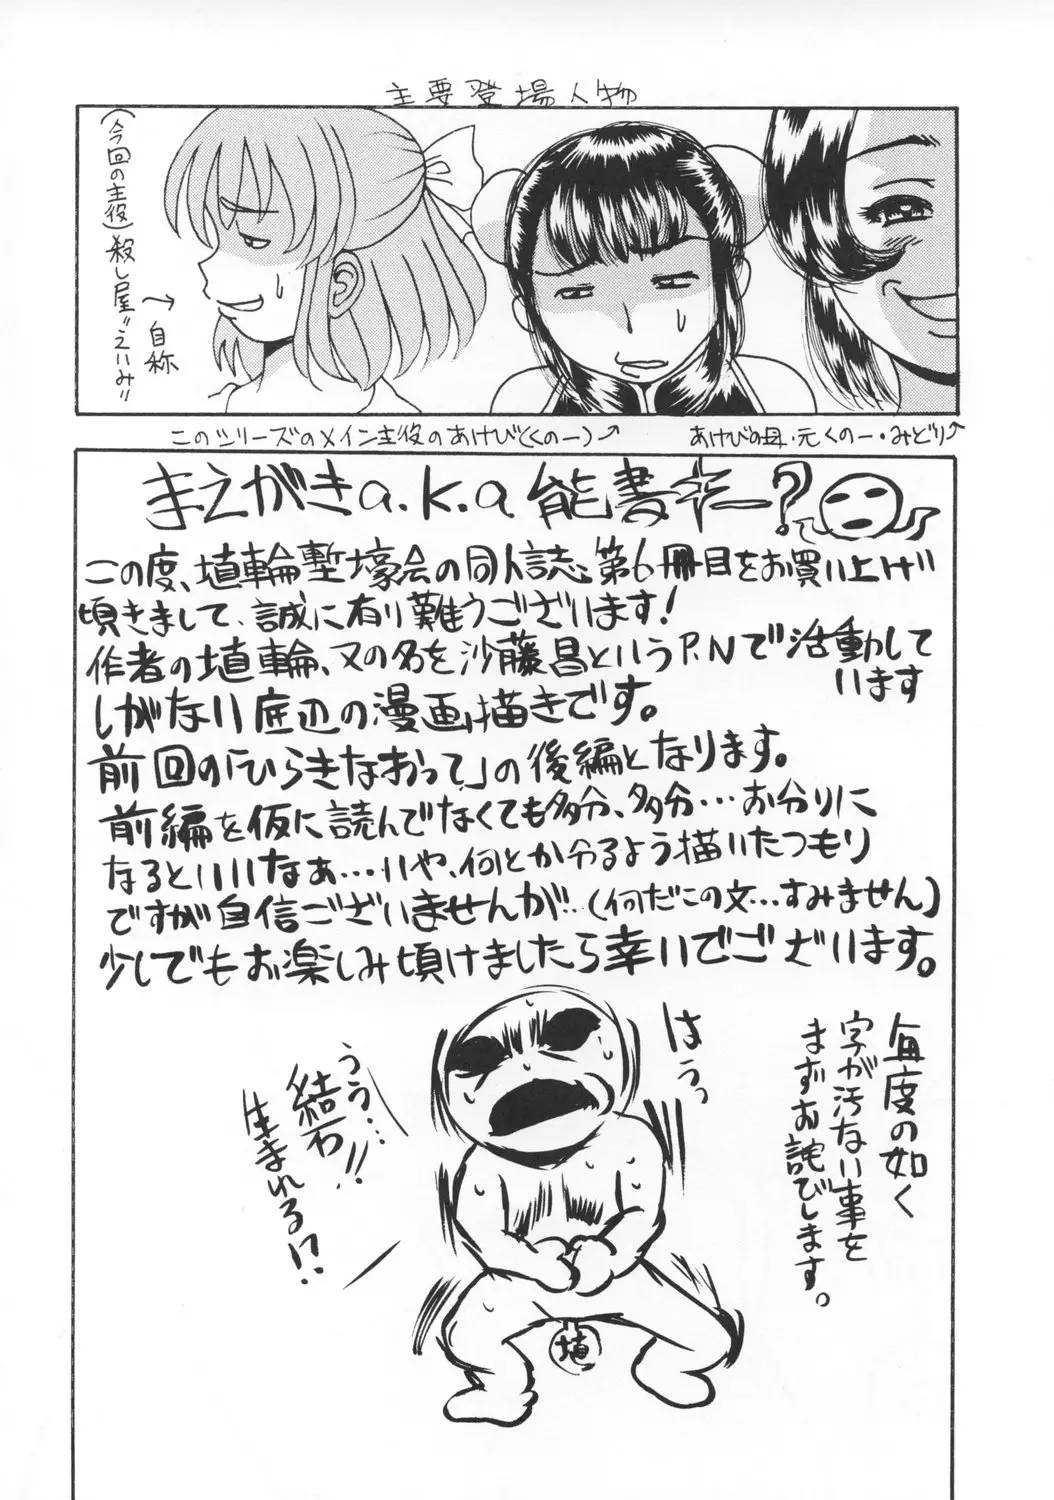 主要登場人物
(今回の主役)殺し屋"えいみ"
→自称
このシリーズのメイン主役のあけび(くの一)→
あけびの母・元くの一・みどり→
まえがきa.k.a能書きー?
この度、埴輪塹壕会の同人誌、第6冊目をお買い上げ
頃きまして、誠に有り難うございます!
作者の埴輪、又の名を沙藤昌というP.Nで活動して
います
しがない底辺の漫画描きです。
前回の「ひらきなおって」の後編となります。
前編を仮に読んでなくても多分、多分…お分りに
なるといいなぁ…いや、何とか分るよう描いたつもり
ですが自信ございませんが…(何だこの文…すみません)
少しでもお楽しみ頃けましたら幸いでございます。
毎度の如く
字が汚ない事を
まずお詫びします。
はうっ
うう…
結石!!
生まれる!?
埴